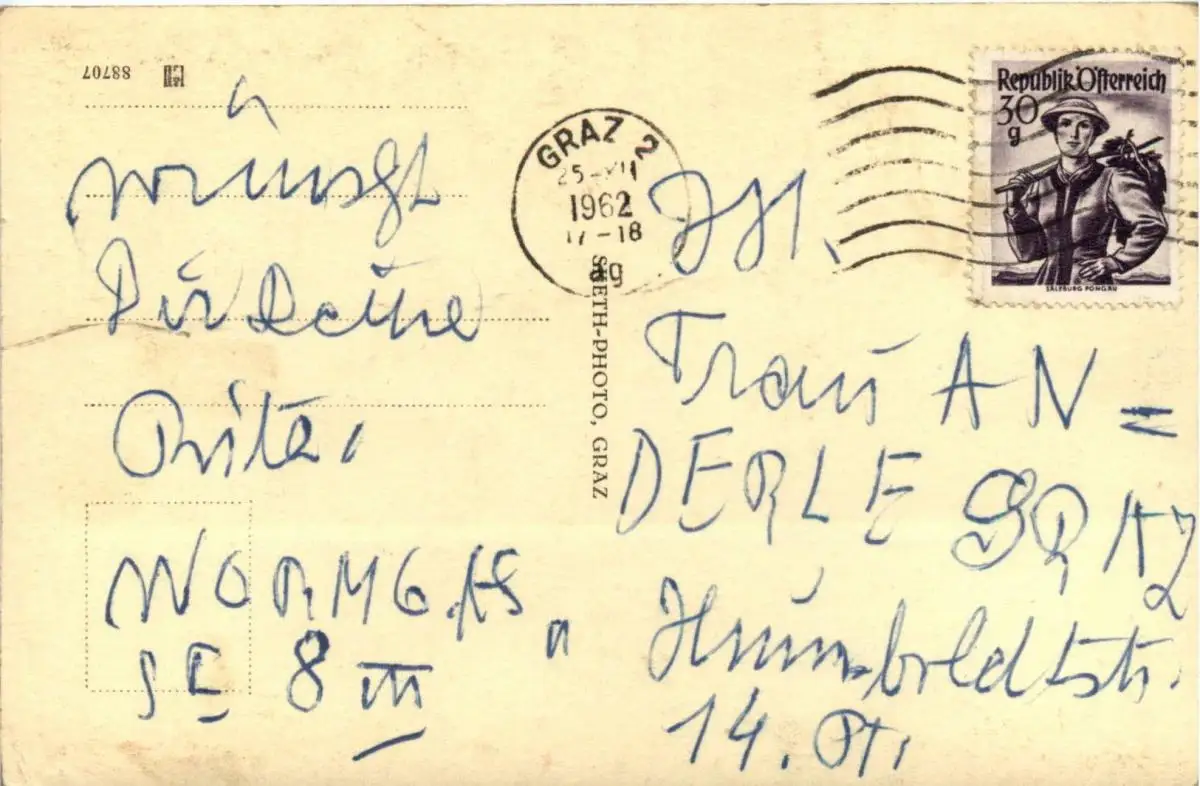 88707
wünscht
Dir Deine
Rita,
WORMG.AS
SE 8 III
GRAZ 2
25-XII
1962
17-18
ag
SPETH-PHOTO, GRAZ
Republik Österreich
30
g
SALZBURG PONGAU
Frau AN=
DERLE GRAZ
Humboldtstr.
14. Pt.